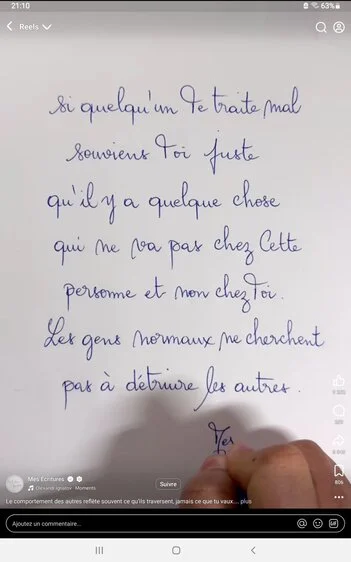 21:10
63%
Reels
si quelqu'un Te traite mal
souviens Toi juste
qu'il y a quelque chose
qui ne va pas chez Cette
personne et non chez Toi.
Les gens normaux ne cherchent
pas à détriure les autres.
Mes
Mes Ecritures
Suivre
Moments
Le comportement des autres reflète souvent ce qu'ils traversent, jamais ce que tu vaux.... plus
806
Ajoutez un commentaire...
GIF